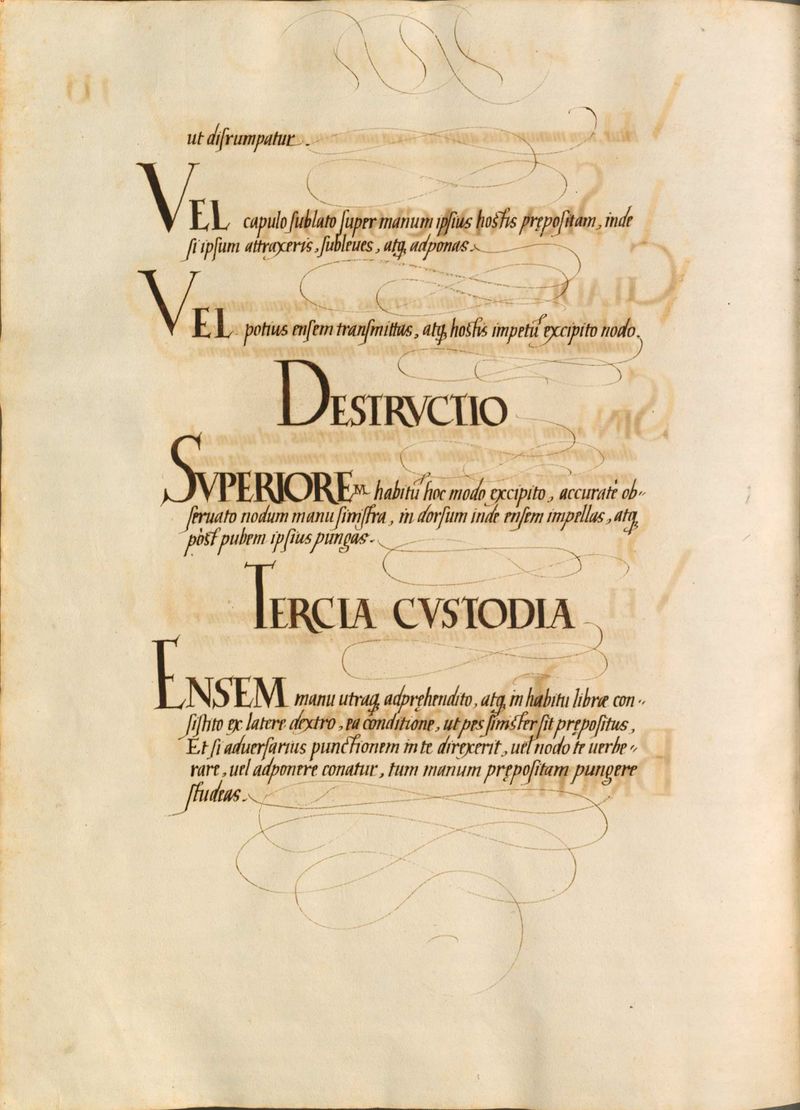 ut disrumpatur.
VEL capulo sublato super manum ipsius hostis prępositam, inde
si ipsum attraxeris, subleues, atq; adponas.
VEL potius ensem transmittas, atq; hostis impetū excipito nodo.
DESTRVCTIO
SVPERIOREM habitū hoc modo excipito, accuratè ob-
seruato nodum manu sinistra, in dorsum inde ensem impellas, atq;
pòst pubem ipsius pungas.
TERCIA CVSTODIA
ENSEM manu utraq; adpręhendito, atq; in habitu libræ con-
sistito ex latere dextro, ea conditione, ut pes sinister sit prępositus,
Et si aduersarius punctionem in te direxerit, uel nodo te uerbe-
rare, uel adponere conatur, tum manum prępositam pungere
studeas.